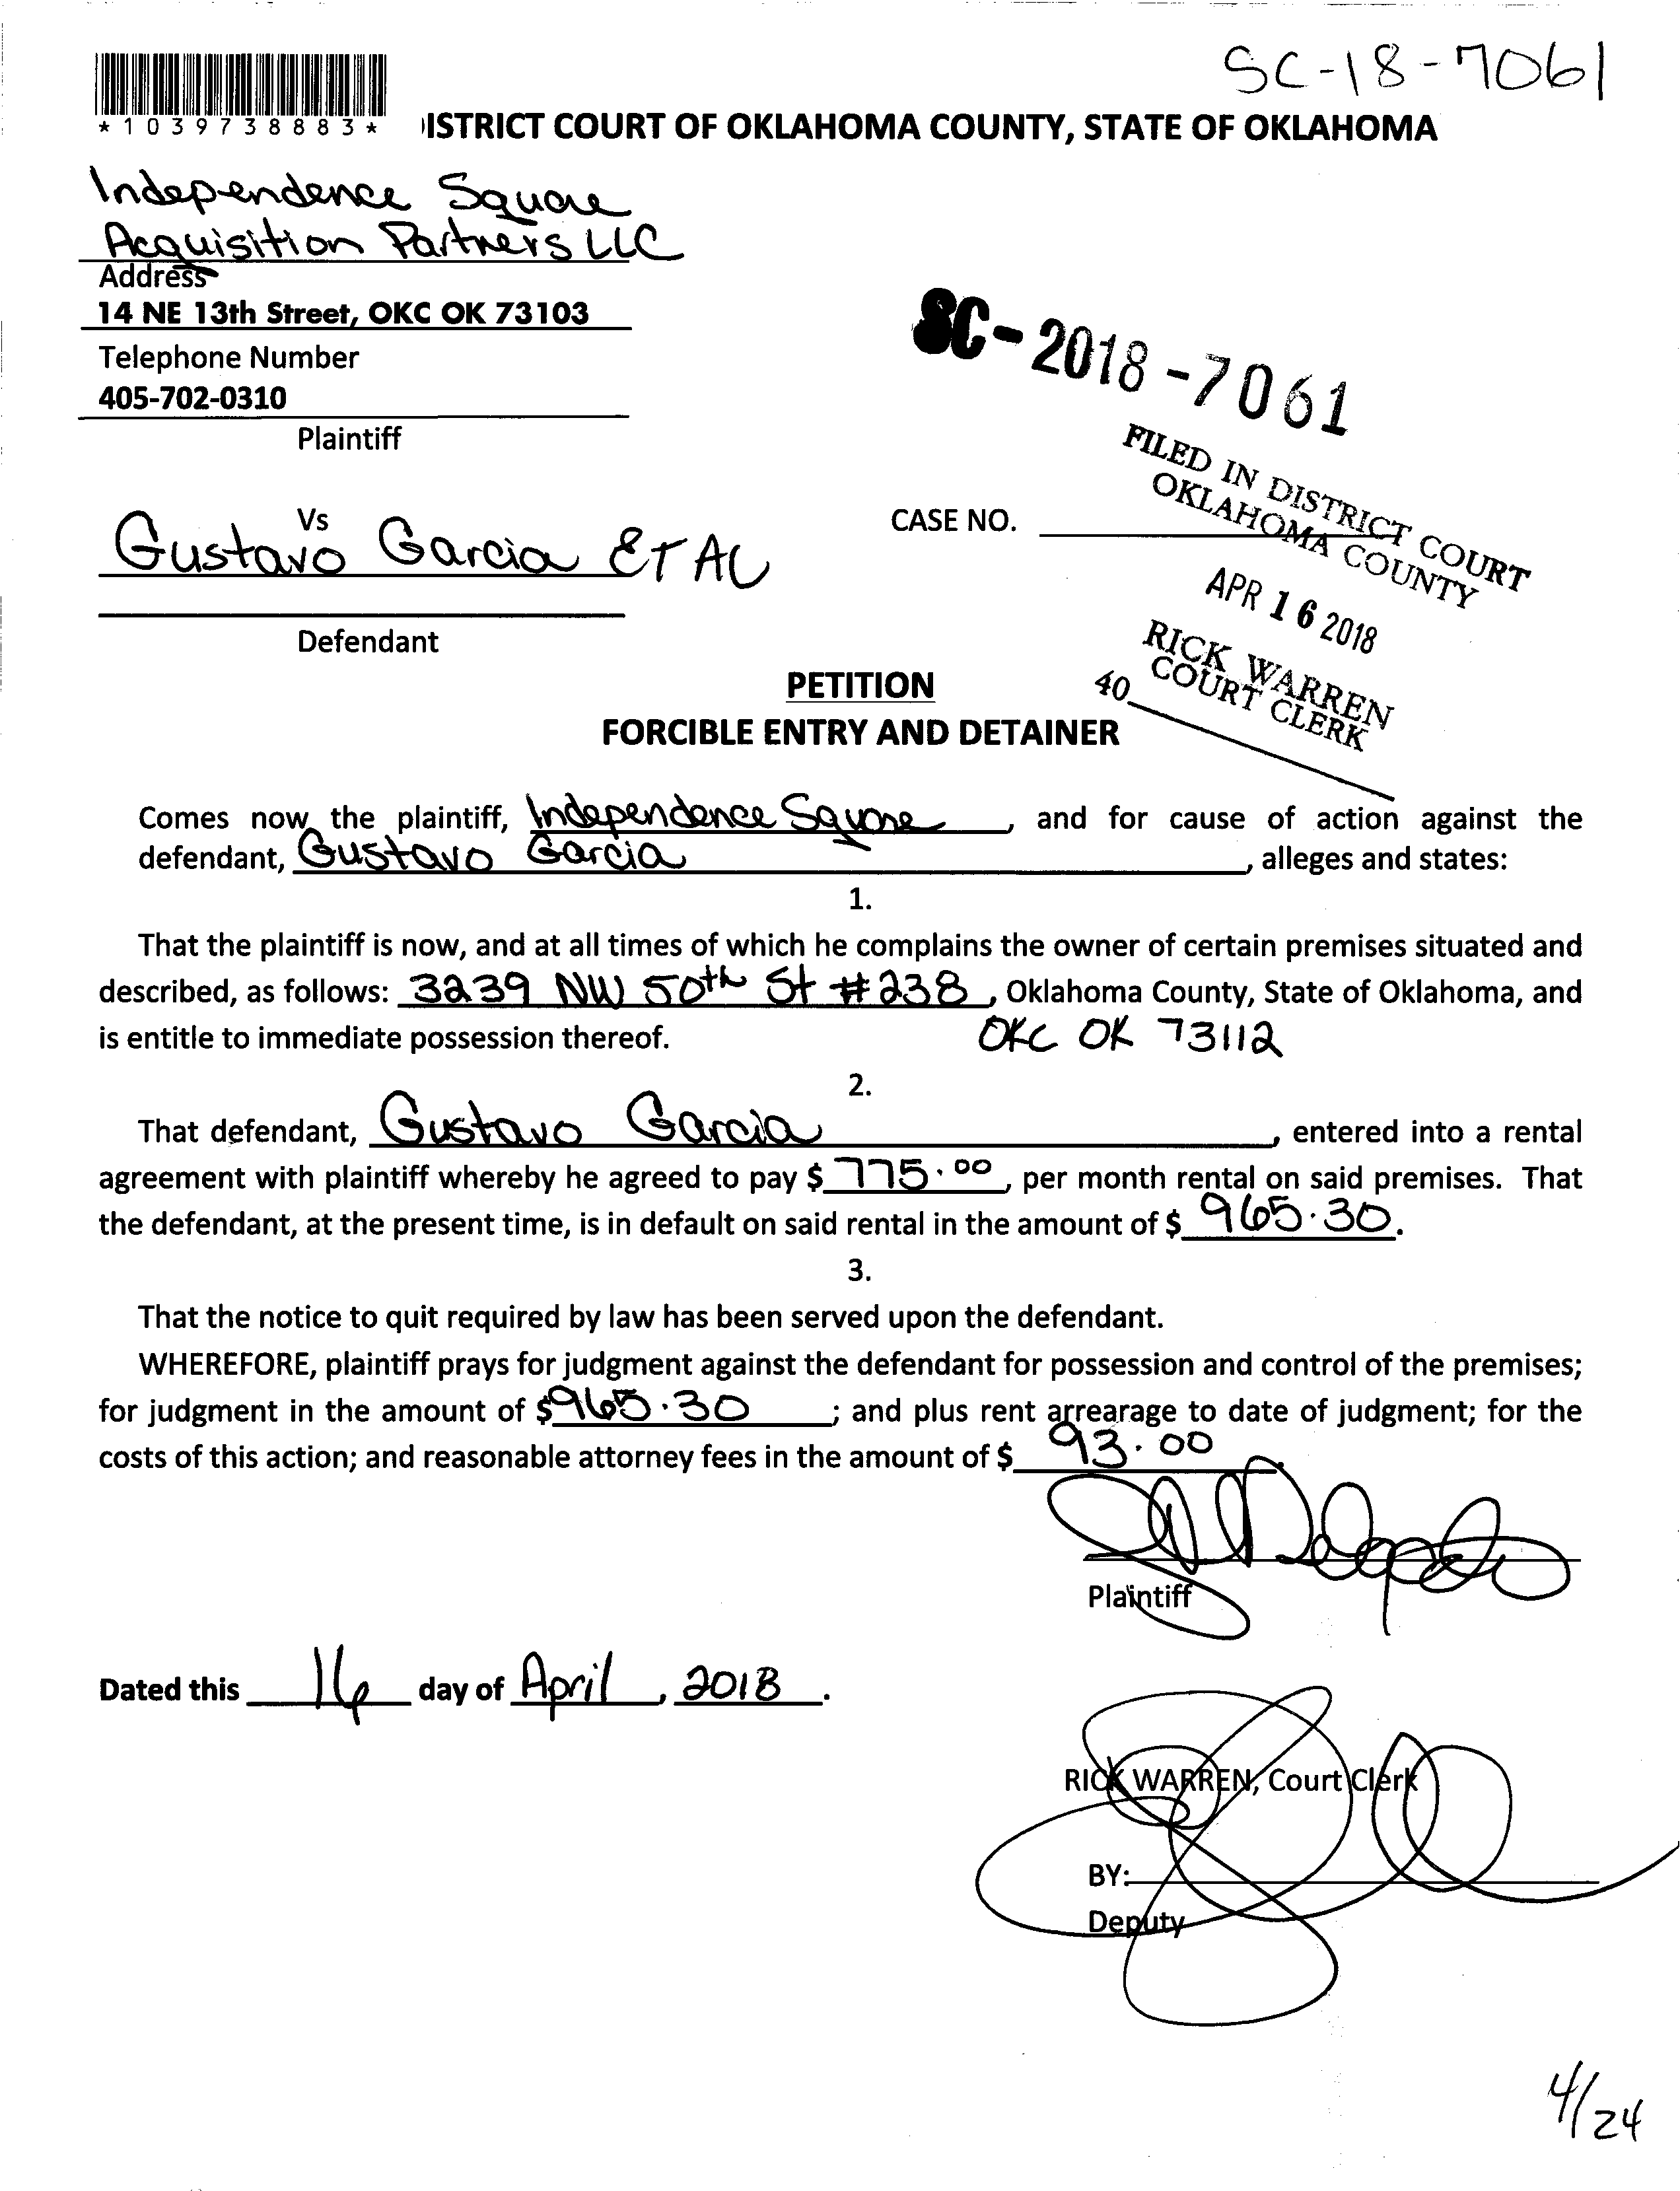 SC-18-7061
*1039738883*
ISTRICT COURT OF OKLAHOMA COUNTY, STATE OF OKLAHOMA
Independence Square
Acquisition Partners LLC
Address
14 NE 13th Street, OKC OK 73103
Telephone Number
405-702-0310
Plaintiff
SC-2018-7061
FILED IN DISTRICT COURT
OKLAHOMA COUNTY
APR 16 2018
RICK WARREN
COURT CLERK
40
Vs
Gustavo Garcia ET AL
CASE NO.
Defendant
PETITION
FORCIBLE ENTRY AND DETAINER
Comes now the plaintiff, Independence Square, and for cause of action against the
defendant, Gustavo Garcia, alleges and states:
1.
That the plaintiff is now, and at all times of which he complains the owner of certain premises situated and
described, as follows: 3239 NW 50th St #238, Oklahoma County, State of Oklahoma, and
is entitle to immediate possession thereof. OKC OK 73112
2.
That defendant, Gustavo Garcia, entered into a rental
agreement with plaintiff whereby he agreed to pay $ 775.00, per month rental on said premises. That
the defendant, at the present time, is in default on said rental in the amount of $ 965.30.
3.
That the notice to quit required by law has been served upon the defendant.
WHEREFORE, plaintiff prays for judgment against the defendant for possession and control of the premises;
for judgment in the amount of $965.30; and plus rent arrearage to date of judgment; for the
costs of this action; and reasonable attorney fees in the amount of $ 93.00
Plaintiff
Dated this 16 day of April, 2018.
RICK WARREN, Court Clerk
BY:
Deputy
4/24